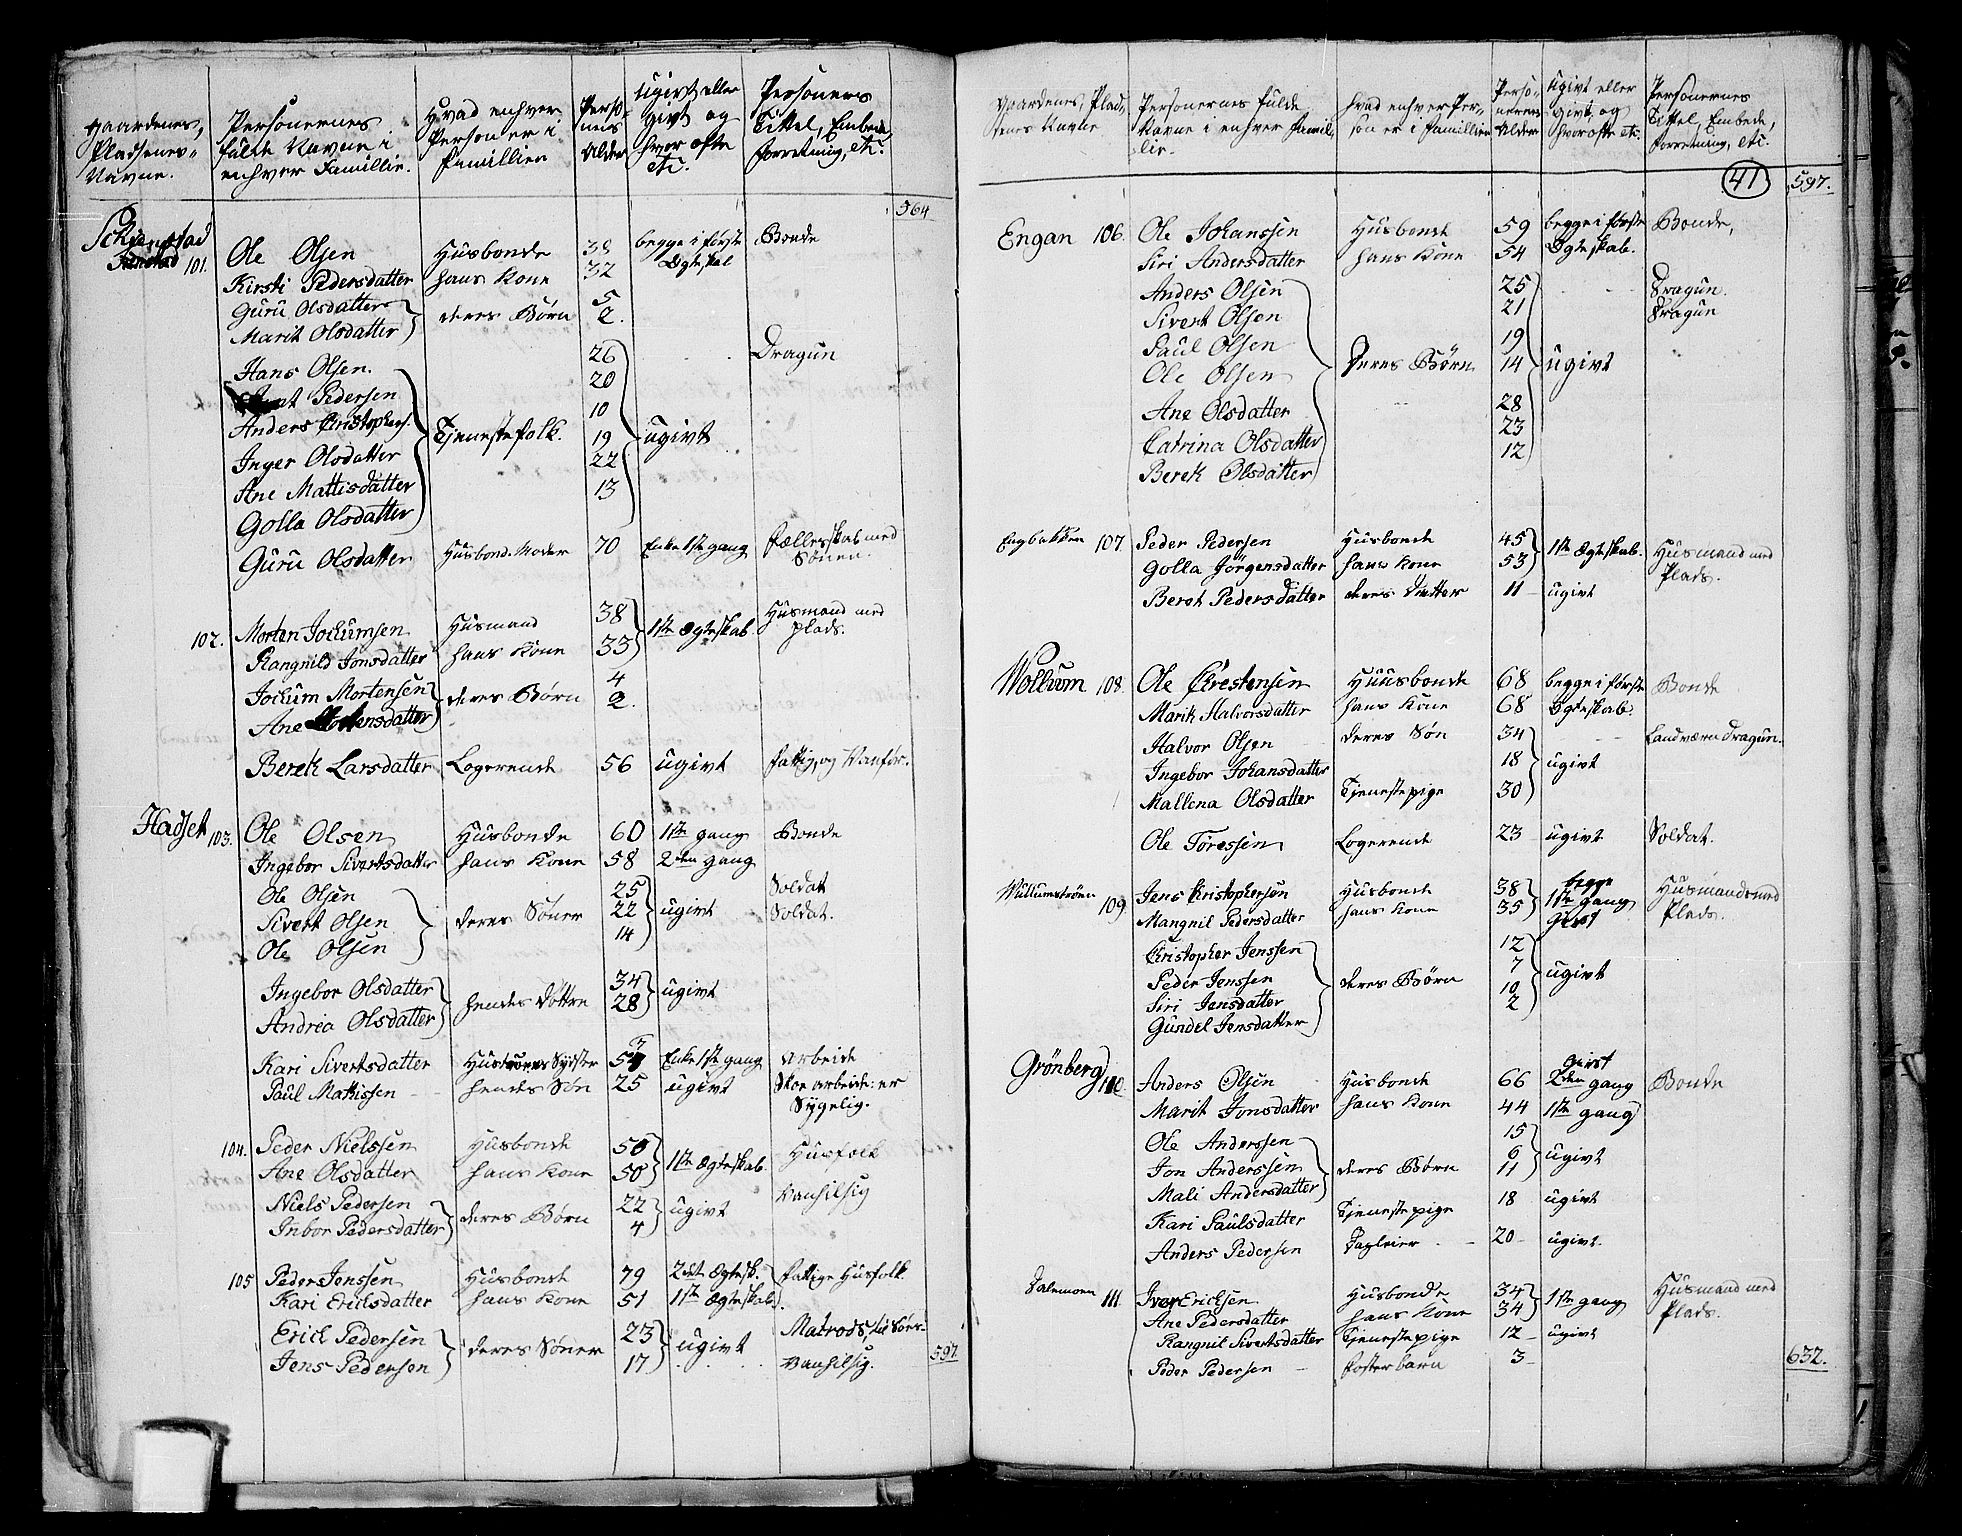 Gaardenes, Pladsenes Navne.
Personernes fulde Navne i enhver Familie.
Hvad enhver Person er i Familien
Personens Alder
Ugivt eller givt og hvor ofte etc.
Personens Tittel, Embede, Forretning, etc.
564
101. Ole Olsen Husbonde 38 begge i første Ægteskab Bonde
Kirsti Pedersdatter hans Kone 32
Guru Olsdatter deres Børn 5
Marit Olsdatter 2.
Hans Olsen. 26 Dragun
Pedersen 20
Anders Christophers. Tjenestefolk. 10 ugivt
Inger Olsdatter 19
Ane Mattisdatter 22
Golla Olsdatter 13
Guru Olsdatter Husbond. Moder 70 Enke 1ste gang Fællesskab med Sønen.
102. Morten Jochumsen Husmand 38 1ste Ægteskab. Husmand med plads.
Rangnild Jonsdatter hans Kone 33
Jochum Mortensen deres Børn 4
Ane Mortensdatter 2.
Berek Larsdatter Logerende 56 ugivt fattig, og Vanfør.
Hadset 103. Ole Olsen Husbonde 60 1ste gang Bonde
Ingebor Sivertsdatter hans Kone 58 2den gang
Ole Olsen 25 Soldat
Sivert Olsen deres Sønner 22 ugivt Soldat.
Ole Olsen 14
Ingebor Olsdatter hendes Døttre 34 ugivt
Andrea Olsdatter 28
Kari Sivertsdatter Hustruens Sydster Enke 1ste gang Arbeide
Paul Mattissen hendes Søn 25 ugivt Skoe arbeide: er Sygelig.
104. Peder Nielssen Husbonde 50 1ste Ægteskab. Husfolk
Ane Olsdatter hans Kone 50
Niels Pedersen deres Børn 22 ugivt Vanhilsig
Inbor Pedersdatter 4
105 Peder Jenssen Husbonde 79 2det Ægtesk. fattige Husfolk.
Kari Ericksdatter hans Kone 51 1ste Ægteskab.
Erick Pedersen deres Sønner 23 ugivt Matrods,
Jens Pedersen 17 Vanhilsig.
597.
Gaardenes, Pladsenes Navne
Personernes fulde Navne i enhver Familie.
Hvad enhver Person er i Familien
Personernes Alder
Ugivt eller givt, og hvor ofte etc.
Personernes Tittel, Embede, Forretning, etc.
41 597.
Engan 106. Ole Johanssen Husbonde 59 begge i første Bonde,
Siri Andersdatter hans Kone 54 Ægteskab.
Anders Olsen 25 Dragun.
Sivert Olsen 21 Dragun
Paul Olsen 19
Ole Olsen Deres Børn 14 ugivt
Ane Olsdatter 28
Catrina Olsdatter 23
Berek Olsdatter 12
Engbakken 107. Peder Pedersen Husbonde 45 1ste Ægteskab. Husmand med Plads.
Golla Jörgensdatter hans Kone 53
Beret Pedersdatter deres Datter 11 ugivt
Wollum 108. Ole Christensen Huusbonde 68 begge i første Bonde
Marit Halvorsdatter hans Kone 68 Ægteskab.
Halvor Olsen deres Søn 34 Landværn Dragun.
Ingebor Johansdatter 18 ugivt
Mallena Olsdatter Tjenestepige 30
Ole Toressen Logerende 23 ugivt Soldat.
Wullumstrøen 109 Jens Christophersen Husbonde 38 begge 1ste gang givt Husmand med Plads.
Mangnil Pedersdatter hans Kone 35
Christopher Jenssen 12
Peder Jenssen deres Børn 7 ugivt
Siri Jensdatter 10
Gundel Jensdatter 2
Grönberg 110. Anders Olsen Husbonde 66 givt 2den gang Bonde
Marit Jonsdatter hans Kone 44 1ste gang
Ole Anderssen 15
Jon Anderssen deres Børn 6 ugivt
Mali Andersdatter 11
Kari Paulsdatter Tjenestepige 18 ugivt
Anders Pedersen 20 ugivt.
Dalemoen 111. Iver Ericksen Husbonde 34 1ste gang Husmand med Plads.
Ane Pedersdatter hans Kone 34
Rangnil Sivertsdatter Tjenestepige 12 ugivt
Peder Pedersen fosterbarn 3
632.